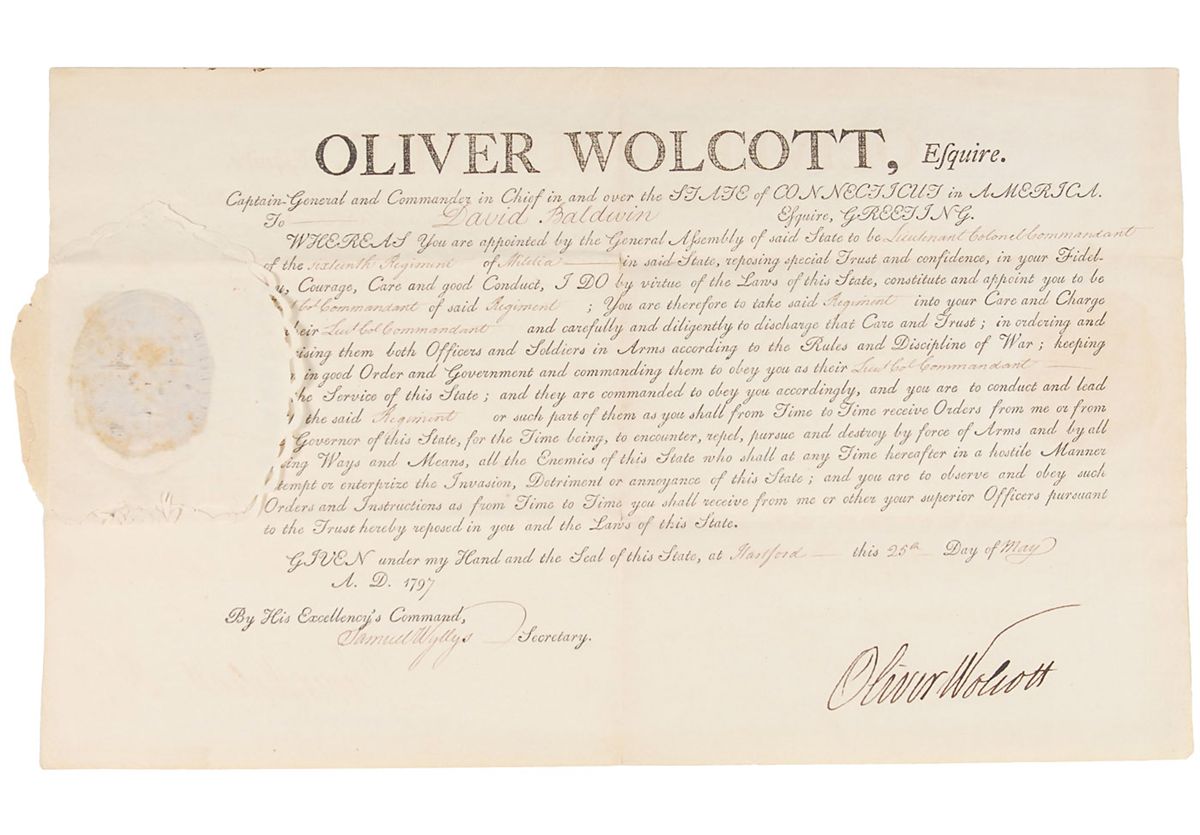 OLIVER WOLCOTT, Eſquire.
Captain-General and Commander in Chief in and over the STATE of CONNECTICUT in AMERICA.
To David Baldwin Eſquire, GREETING.
WHEREAS You are appointed by the General Aſsembly of said State to be Lieutenant Colonel Commandant
of the sixteenth Regiment of Militia in said State, reposing special Trust and confidence, in your Fidel-
Courage, Care and good Conduct, I DO by virtue of the Laws of this State, constitute and appoint you to be
Col Commandant of said Regiment ; You are therefore to take said Regiment into your Care and Charge
eir Lieut Col Commandant and carefully and diligently to discharge that Care and Trust ; in ordering and
ising them both Officers and Soldiers in Arms according to the Rules and Discipline of War ; keeping
in good Order and Government and commanding them to obey you as their Lieut Col Commandant
he Service of this State ; and they are commanded to obey you accordingly, and you are to conduct and lead
the said Regiment or such part of them as you shall from Time to Time receive Orders from me or from
Governor of this State, for the Time being, to encounter, repel, pursue and destroy by force of Arms and by all
ing Ways and Means, all the Enemies of this State who shall at any Time hereafter in a hostile Manner
tempt or enterprize the Invasion, Detriment or annoyance of this State ; and you are to observe and obey such
Orders and Instructions as from Time to Time you shall receive from me or other your superior Officers pursuant
to the Trust hereby reposed in you and the Laws of this State.
GIVEN under my Hand and the Seal of this State, at Hartford this 25th Day of May
A. D. 1797
By His Excellency's Command,
Samuel Wyllys Secretary.
Oliver Wolcott